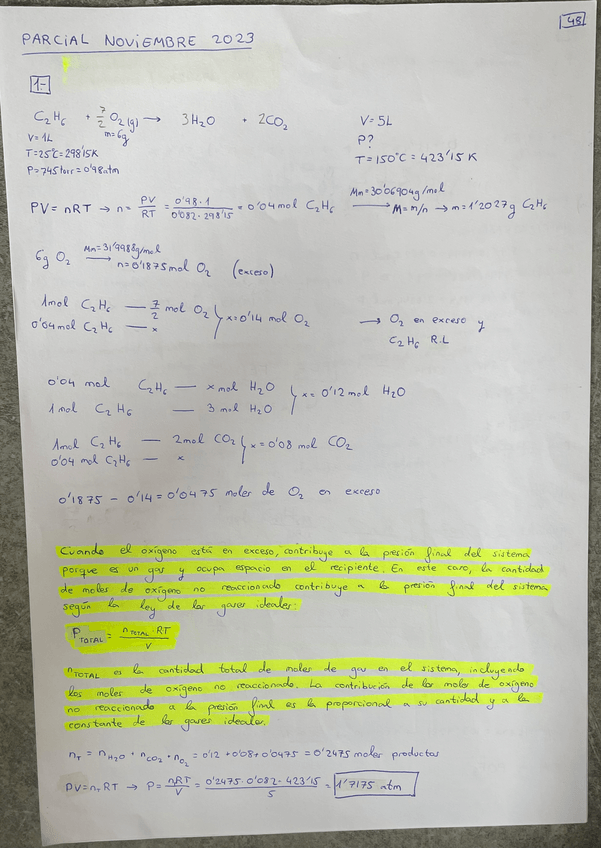 48
PARCIAL NOVIEMBRE 2023
1-
C₂H₆ + 7/2 O₂(g) → 3H₂O + 2CO₂
V = 5L
V = 1L
m = 6g
P?
T = 25°C = 298'15K
T = 150°C = 423'15 K
P = 745 torr = 0'98 atm
PV = nRT → n = PV/RT = 0'98·1/0'082·298'15 = 0'04 mol C₂H₆ Mm = 30'06904 g/mol → M = m/n → m = 1'2027g C₂H₆
6g O₂ Mm = 31'9988g/mol → n = 0'1875 mol O₂ (exceso)
1mol C₂H₆ — 7/2 mol O₂
0'04 mol C₂H₆ — x
x = 0'14 mol O₂
→ O₂ en exceso y
C₂H₆ R.L
0'04 mol C₂H₆ — x mol H₂O
1 mol C₂H₆ — 3 mol H₂O
x = 0'12 mol H₂O
1mol C₂H₆ — 2mol CO₂
0'04 mol C₂H₆ — x
x = 0'08 mol CO₂
0'1875 - 0'14 = 0'0475 moles de O₂ en exceso
Cuando el oxígeno está en exceso, contribuye a la presión final del sistema
porque es un gas y ocupa espacio en el recipiente. En este caso, la cantidad
de moles de oxígeno no reaccionado contribuye a la presión final del sistema
según la ley de los gases ideales:
P TOTAL = n TOTAL · RT / V
n TOTAL es la cantidad total de moles de gas en el sistema, incluyendo
los moles de oxígeno no reaccionado. La contribución de los moles de oxígeno
no reaccionado a la presión final es la proporcional a su cantidad y a la
constante de los gases ideales.
n_T = n_H₂O + n_CO₂ + n_O₂ = 0'12 + 0'08 + 0'0475 = 0'2475 moles productos
PV = n_T RT → P = nRT/V = 0'2475·0'082·423'15/5 = 1'7175 atm